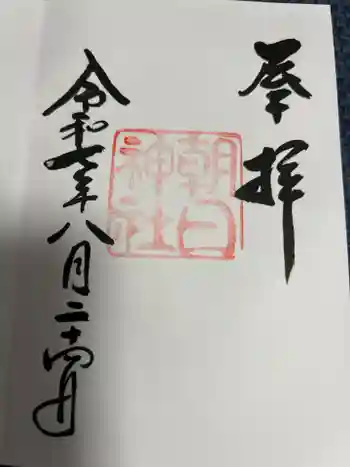 奉拝
朝日
神社
令和七年八月二十四日